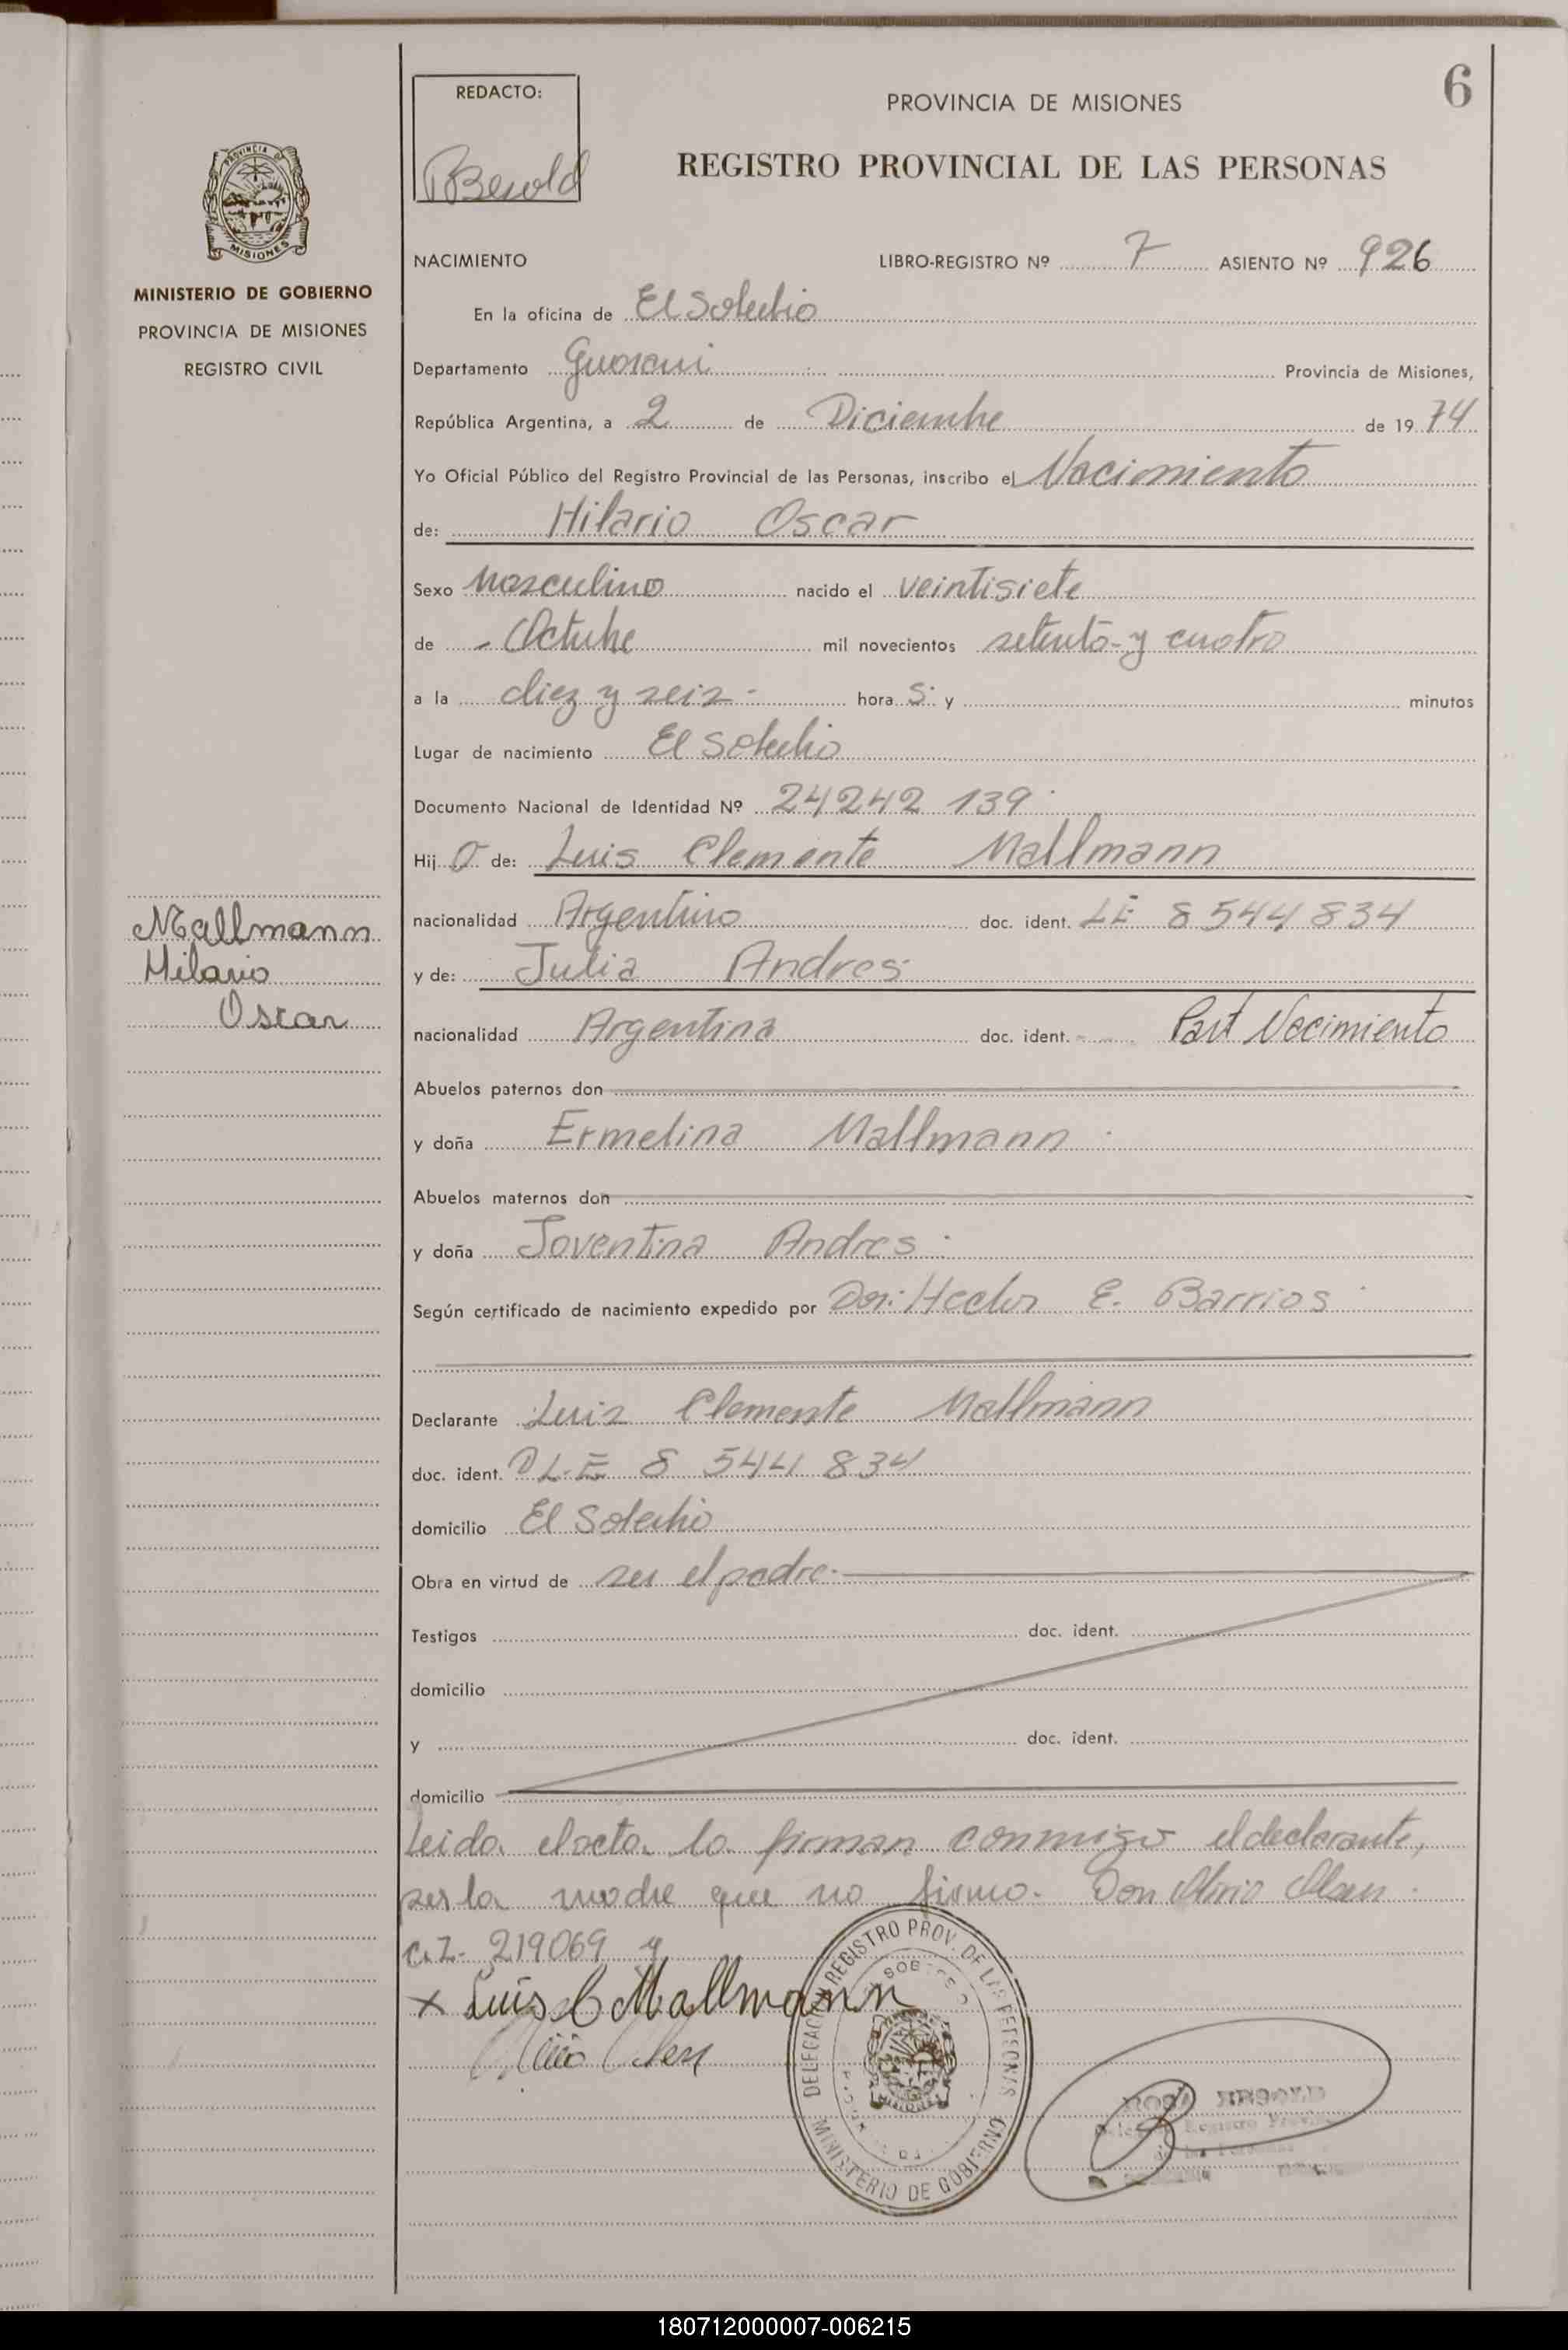 6
REDACTO:
PROVINCIA DE MISIONES
REGISTRO PROVINCIAL DE LAS PERSONAS
PROVINCIA DE
MISIONES
MINISTERIO DE GOBIERNO
PROVINCIA DE MISIONES
REGISTRO CIVIL
NACIMIENTO LIBRO-REGISTRO Nº 7 ASIENTO Nº 926
En la oficina de El Soberbio
Departamento Guarani Provincia de Misiones,
República Argentina, a 2 de Diciembre de 1974
Yo Oficial Público del Registro Provincial de las Personas, inscribo el Nacimiento
de: Hilario Oscar
Sexo masculino nacido el veintisiete
de - Octubre mil novecientos setenta y cuatro
a la diez y seis - hora S. y minutos
Lugar de nacimiento El Soberbio
Documento Nacional de Identidad Nº 24242 139
Hij o de: Luis Clemente Mallmann
nacionalidad Argentino doc. ident. LE 8544834
Mallmann
Hilario
Oscar
y de: Julia Andres
nacionalidad Argentina doc. ident. Part Nacimiento
Abuelos paternos don
y doña Ermelina Mallmann
Abuelos maternos don
y doña Joventina Andres
Según certificado de nacimiento expedido por Don: Hector E. Barrios
Declarante Luis Clemente Mallmann
doc. ident. L.E 8 544 834
domicilio El Soberbio
Obra en virtud de ser el padre.
Testigos doc. ident.
domicilio
y doc. ident.
domicilio
Leida el acta la firman conmigo el declarante,
la madre que no firmo. Don
C.I. 219069 y
x Luis C Mallmann
DELEGACION REGISTRO PROV. DE LAS PERSONAS
MINISTERIO DE GOBIERNO
180712000007-006215